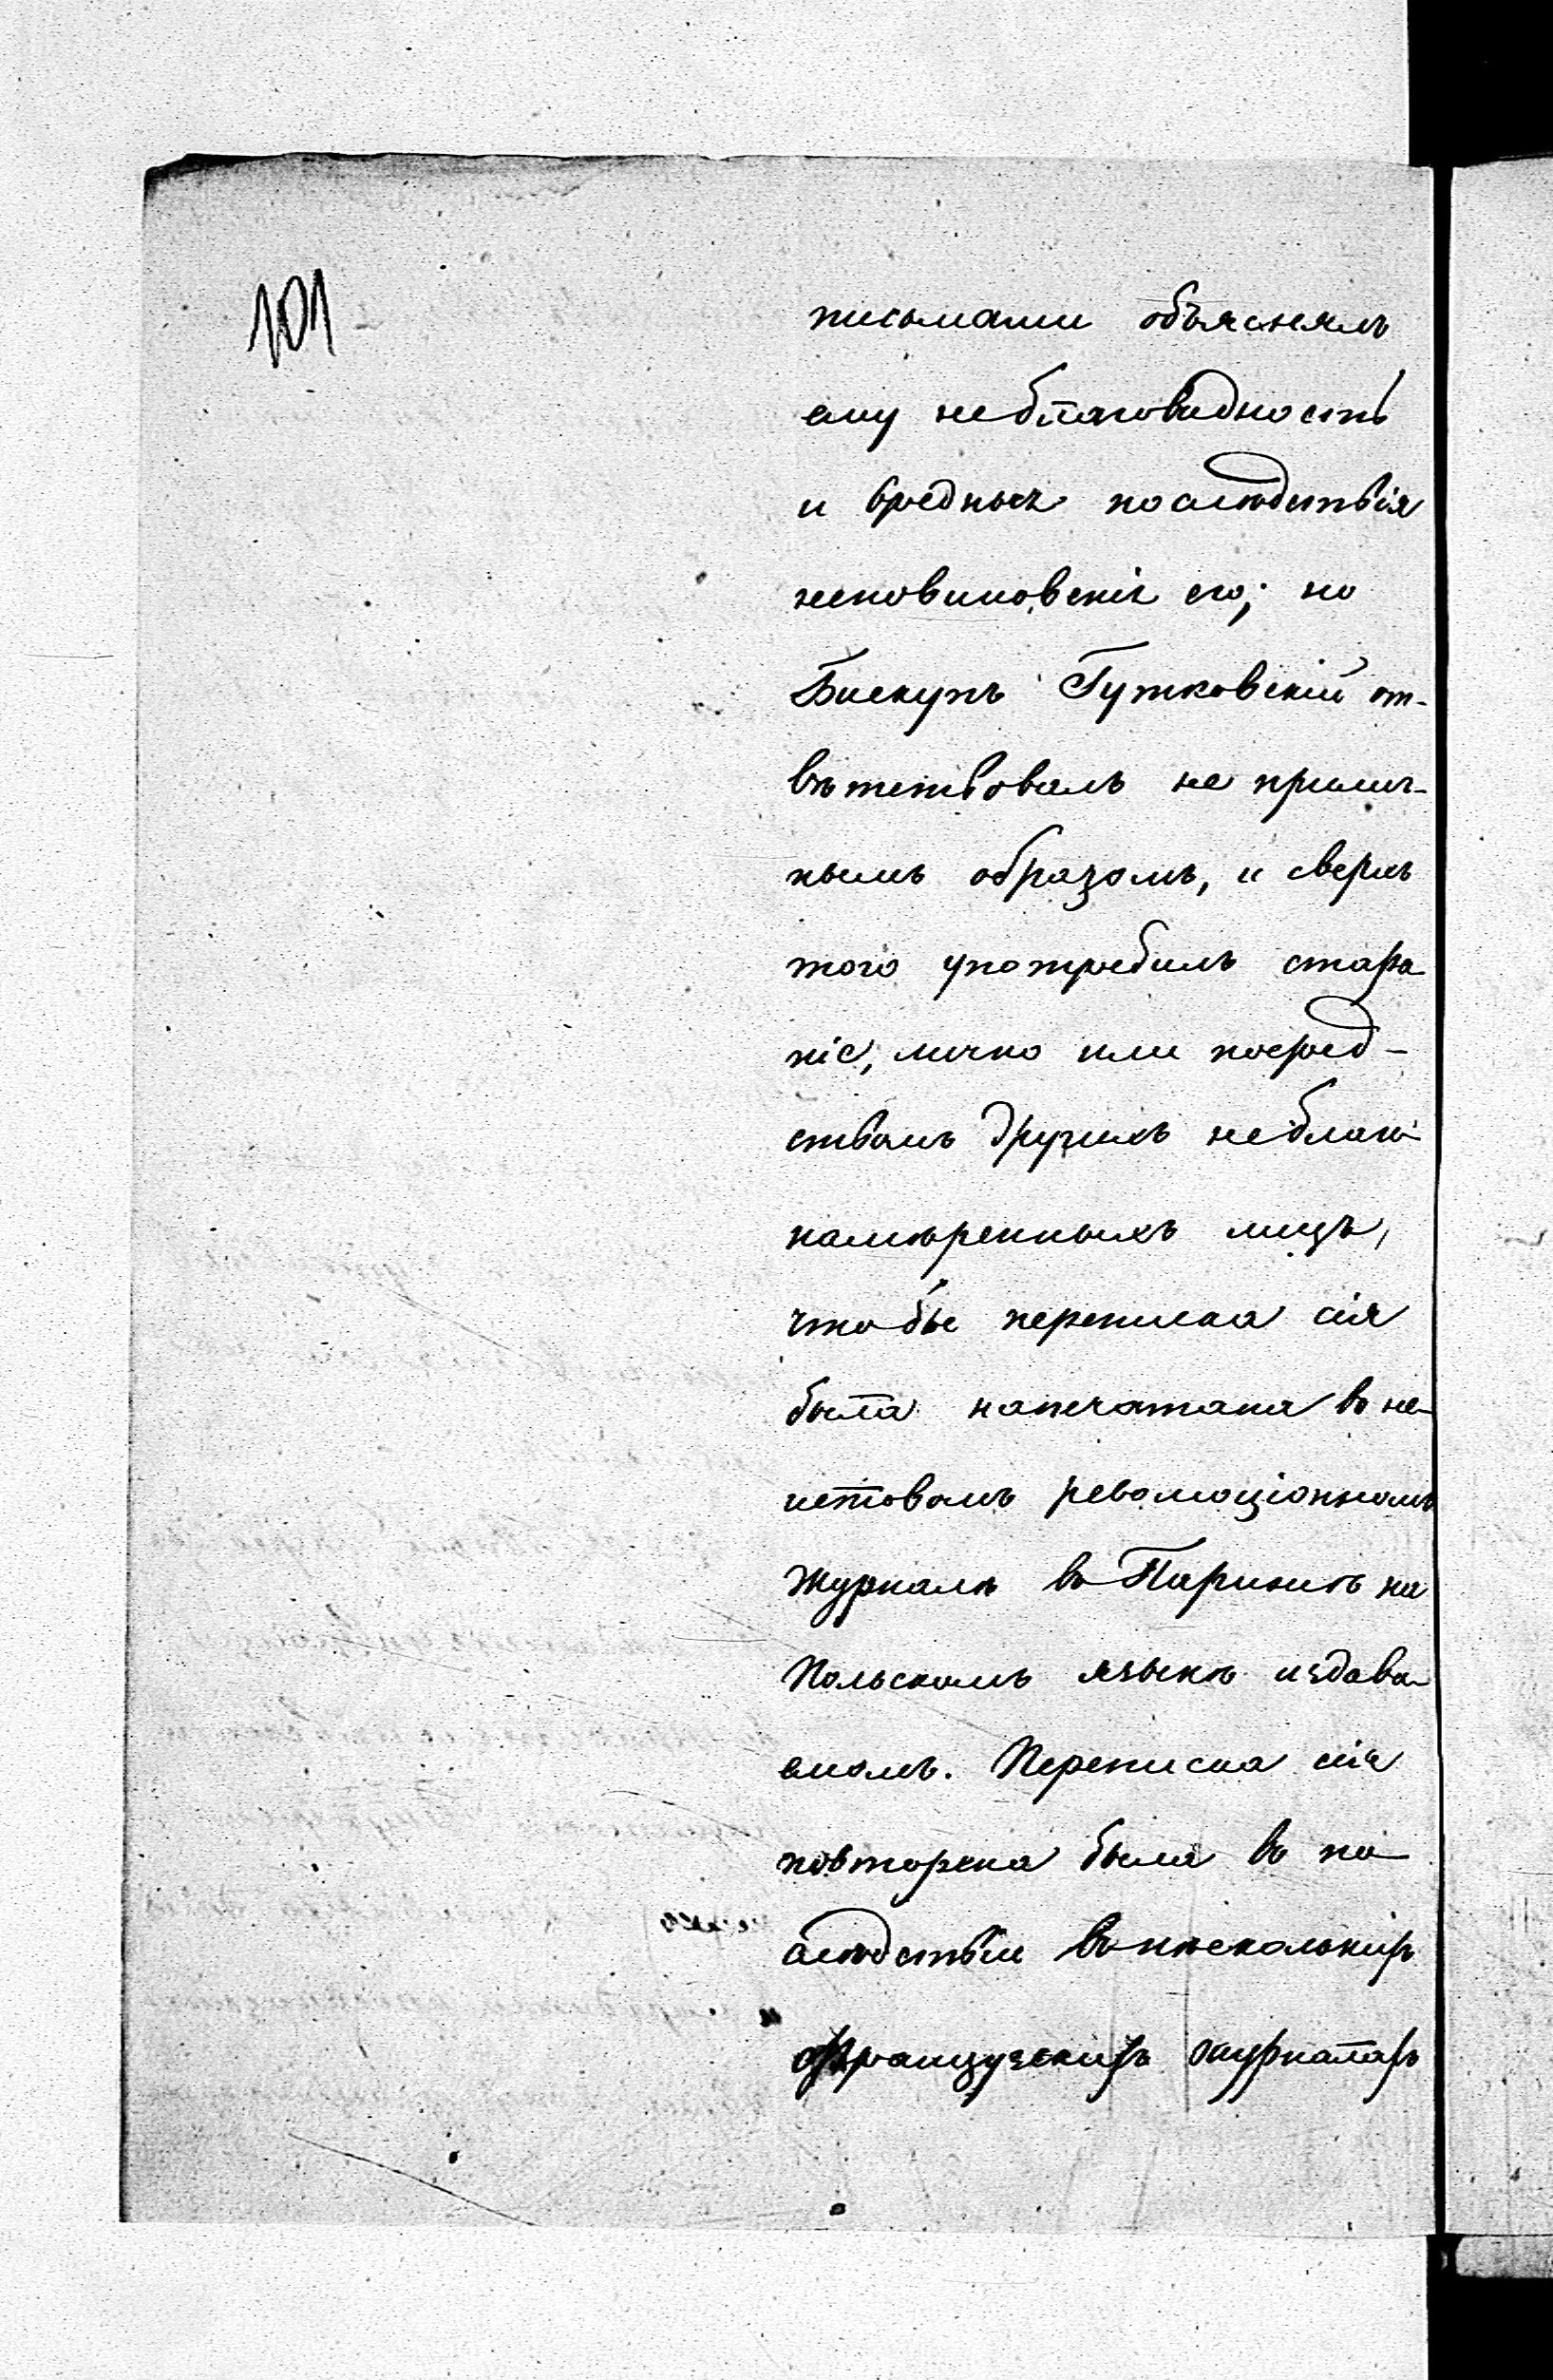 101
письмами объяснялъ
ему неблаговидность
и вредныя послѣдствія
неповиновенія его; но
Бискупъ Гутковскій от-
вѣтствовалъ не прилич-
нымъ образомъ, и сверхъ
того употребилъ стара
ніе, лично или посред-
ствомъ другихъ неблаго-
намѣренныхъ лицъ,
чтобы переписка сія
была напечатана въ не-
истовомъ революціонномъ
журналѣ въ Парижѣ на
Польскомъ языкѣ издава-
емомъ. Переписка сія
повторена была въ по-
слѣдствіи въ нѣсколькихъ
французскихъ журналахъ